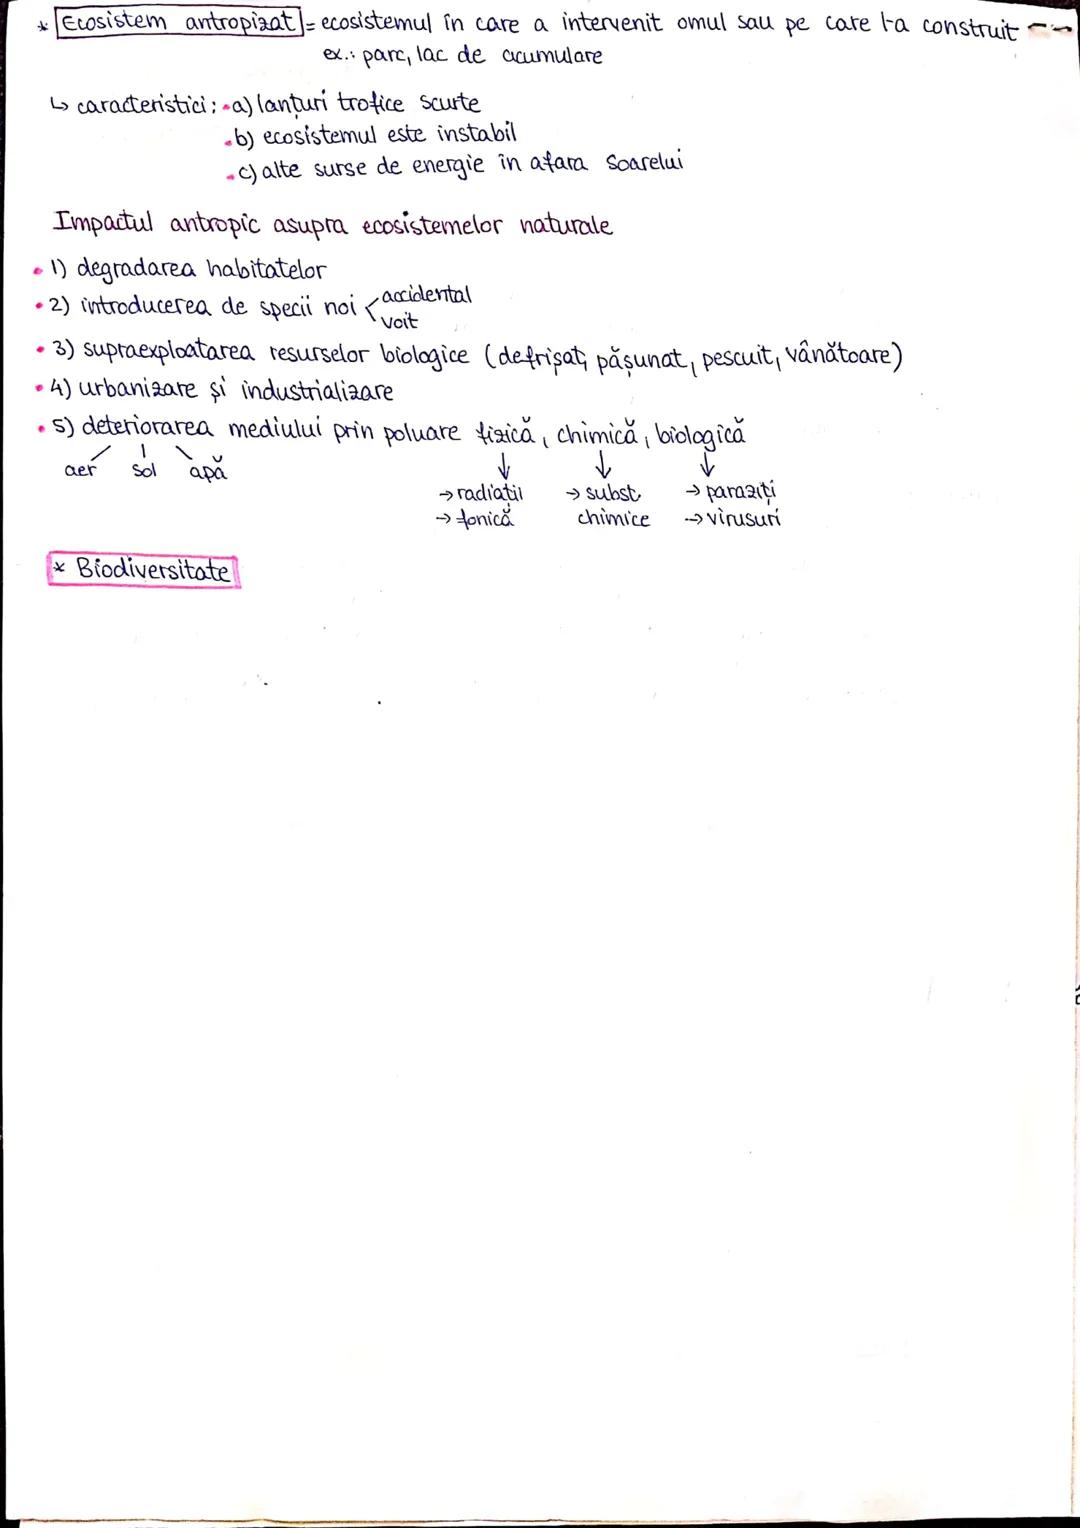 * Ecosistem antropizat = ecosistemul în care a intervenit omul sau pe care l-a construit
ex.: parc, lac de acumulare
↳ caracteristici: • a) lanțuri trofice scurte
• b) ecosistemul este instabil
• c) alte surse de energie în afara Soarelui
Impactul antropic asupra ecosistemelor naturale
• 1) degradarea habitatelor
• 2) introducerea de specii noi < accidental
voit
• 3) supraexploatarea resurselor biologice (defrișat, pășunat, pescuit, vânătoare)
• 4) urbanizare și industrializare
• 5) deteriorarea mediului prin poluare fizică, chimică, biologică
aer sol apă ↓ ↓ ↓
→ radiații → subst. → paraziți
→ fonică chimice → virusuri
* Biodiversitate